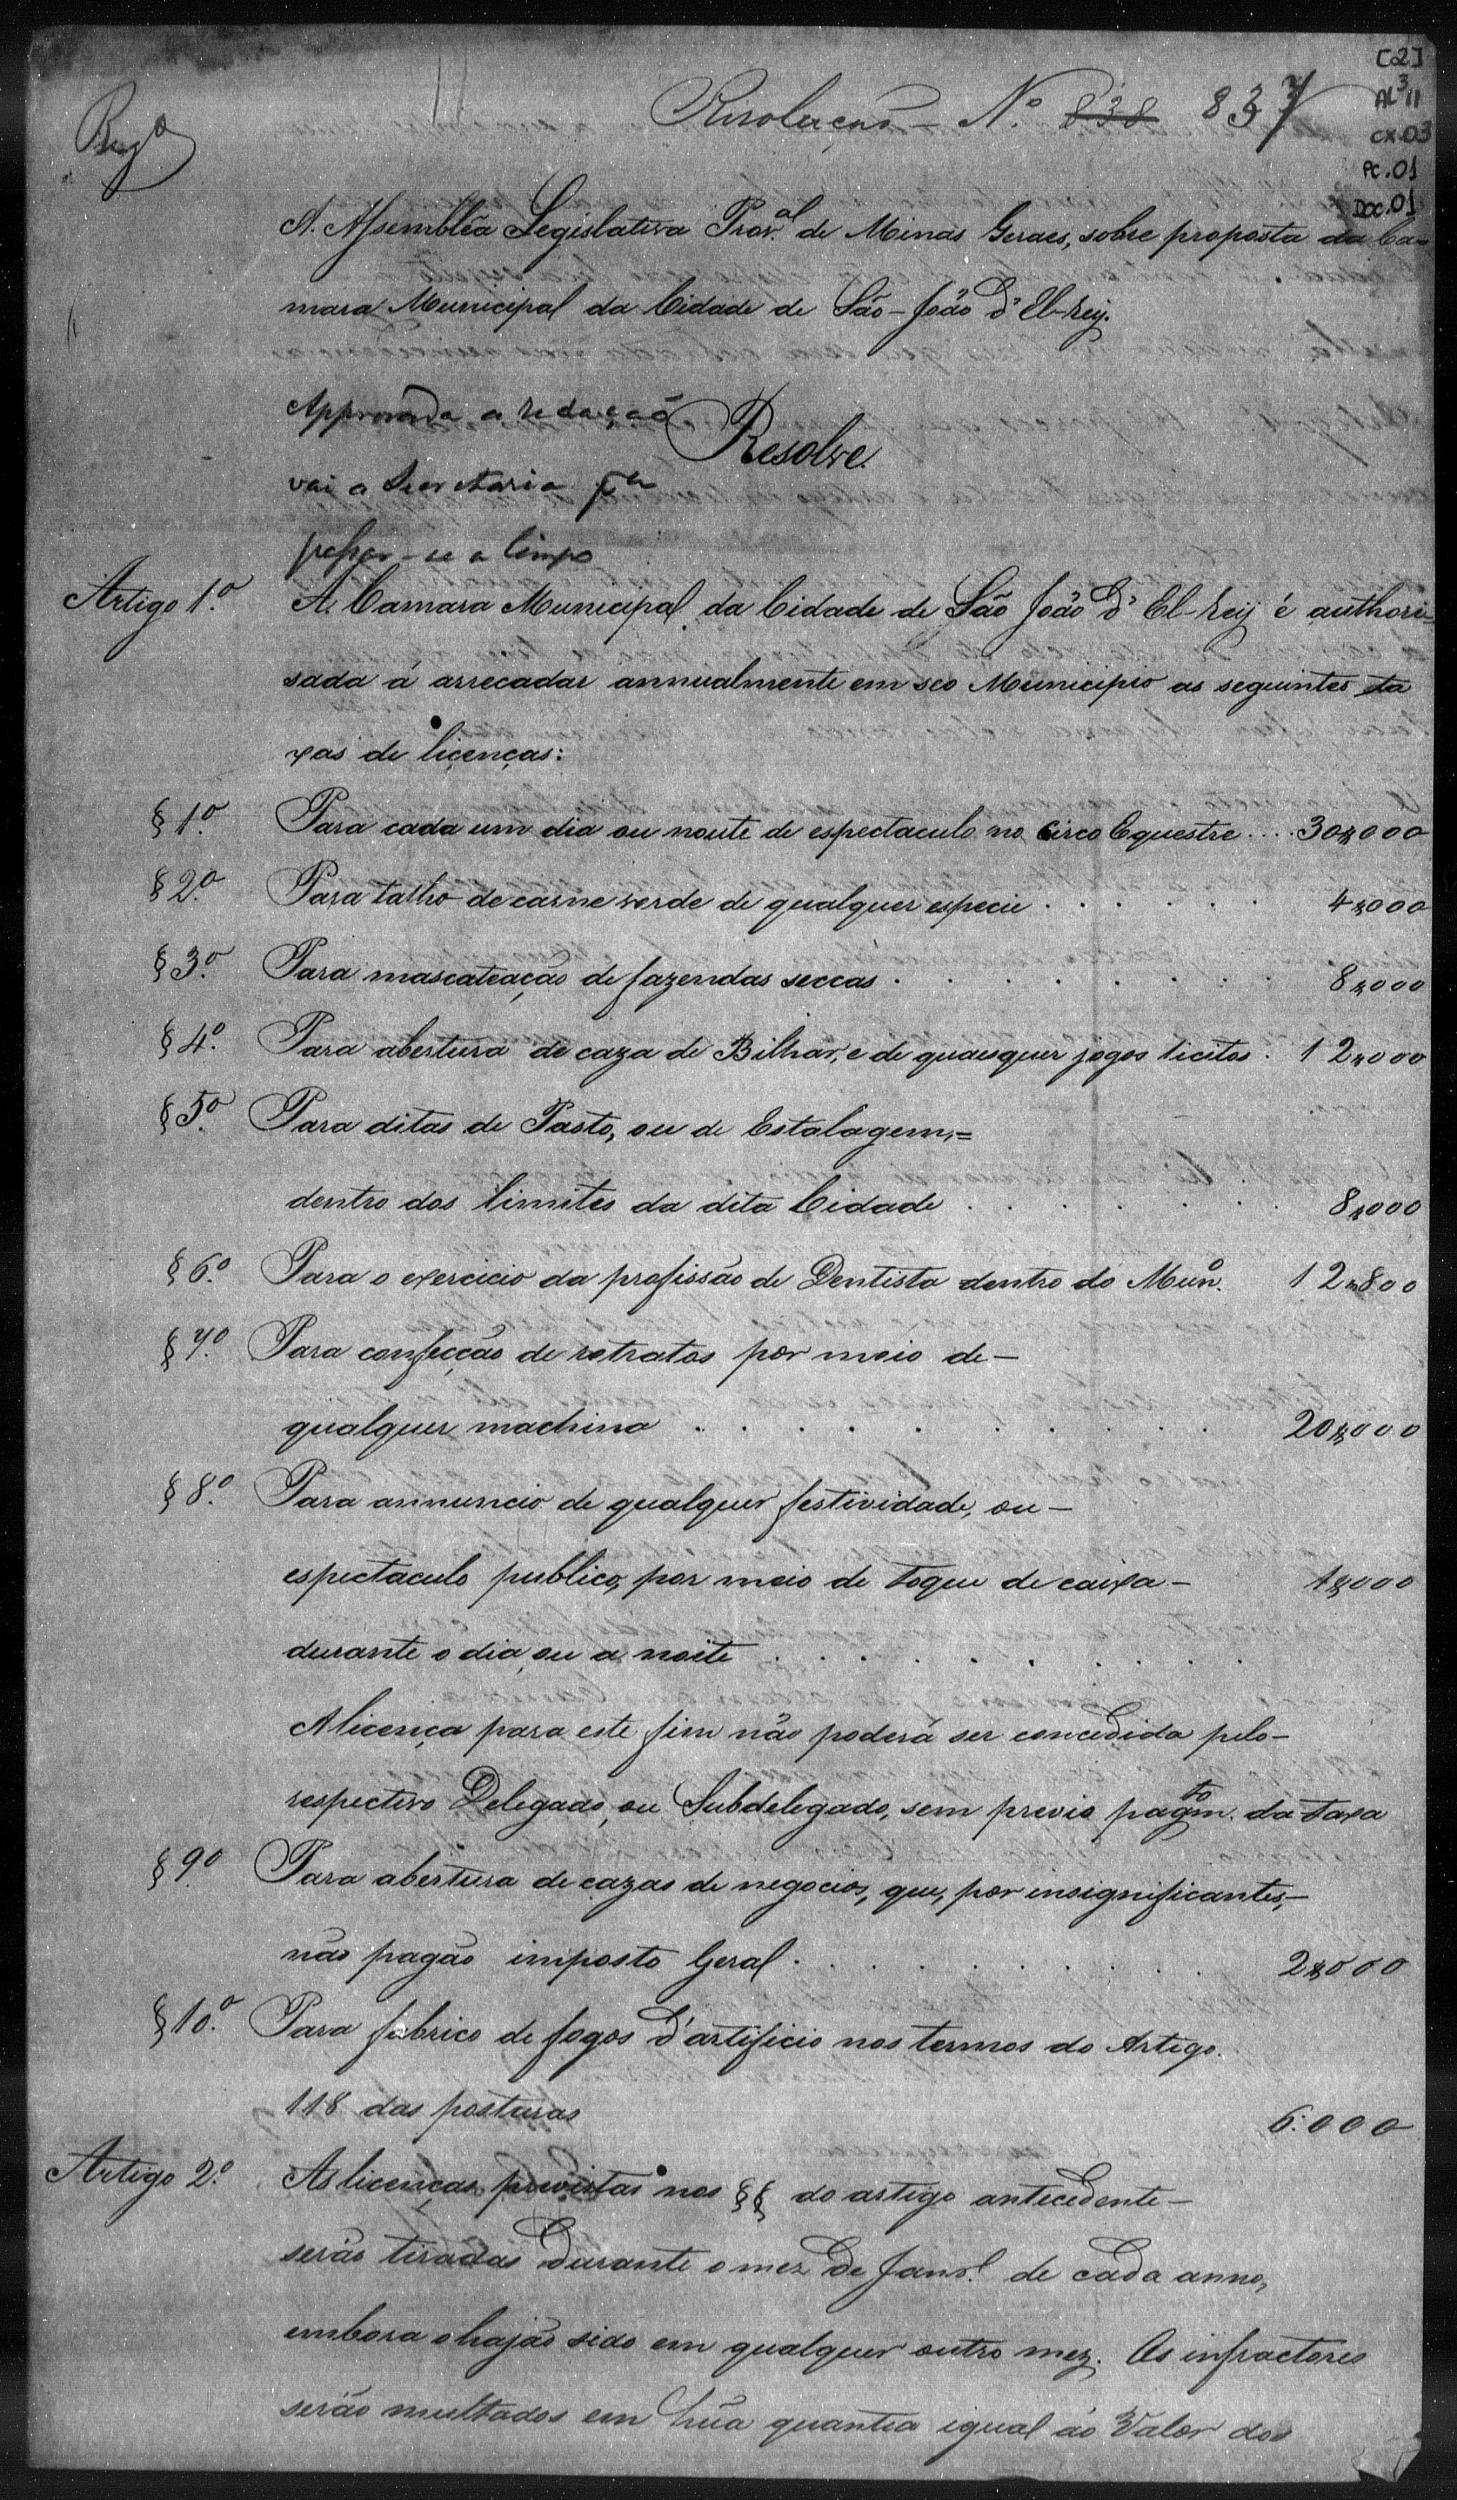 [2]
AL³ 11
CX.03
PC.01
DOC.01
Reg.º
Resolução - N.º 838 837
A Assembléa Legislativa Prov.al de Minas Geraes, sobre proposta da Ca-
mara Municipal da Cidade de São-João d'El-Rey.
Approvada a redacção
Resolve.
vai a Secretaria pa
passar-se a limpo
Artigo 1.º A Camara Municipal da Cidade de São João d'El-Rey é authori-
sada á arrecadar annualmente em seo Municipio as seguintes ta
xas de licenças:
§ 1.º Para cada um dia ou noute de espectaculo no Circo Equestre .... 30$000
§ 2.º Para talho de carne verde de qualquer especie . . . . . . 4$000
§ 3.º Para mascateação de fazendas seccas . . . . . . . . 8$000
§ 4.º Para abertura de caza de Bilhar, e de quaesquer jogos licitos . 12$000
§ 5.º Para ditas de Pasto, ou de Estalagem,=
dentro dos limites da dita Cidade . . . . . . . 8$000
§ 6.º Para o exercicio da profissão de Dentista dentro do Mun.º 12$800
§ 7.º Para confecção de retratos por meio de-
qualquer machina . . . . . . . . . . 20$000
§ 8.º Para annuncio de qualquer festividade, ou-
espectaculo publico, por meio de toque de caixa- 1$000
durante o dia, ou a noite . . . . . . . . .
A licença para este fim não poderá ser concedida pelo-
respectivo Delegado, ou Subdelegado, sem previo pagm.to da taxa
§ 9.º Para abertura de cazas de negocios, que, por insignificantes,-
não pagão imposto Geral . . . . . . . . 2$000
§ 10.º Para fabrico de fogos d'artificio nos termos do Artigo.
118 das posturas 6:000
Artigo 2.º As licenças previstas nos §§ do artigo antecedente-
serão tiradas durante o mez de Janr.º de cada anno,
embora o hajão sido em qualquer outro mez. Os infractores
serão multados em hũa quantia igual ao valor dos